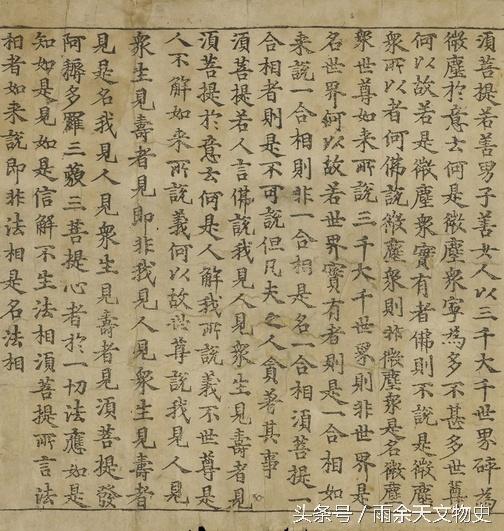 須菩提若善男子善女人以三千大千世界碎為
微塵於意云何是微塵衆寧為多不甚多世尊
何以故若是微塵衆實有者佛則不說是微塵
衆所以者何佛說微塵衆則非微塵衆是名微塵
衆世尊如来所說三千大千世界則非世界是
名世界何以故若世界實有者則是一合相如
来說一合相則非一合相是名一合相須菩提一
合相者則是不可說但凡夫之人貪著其事
須菩提若人言佛說我見人見衆生見壽者見
須菩提於意云何是人解我所說義不世尊是
人不解如来所說義何以故世尊說我見人見
衆生見壽者見即非我見人見衆生見壽者
見是名我見人見衆生見壽者見須菩提發
阿耨多羅三藐三菩提心者於一切法應如是
知如是見如是信解不生法相須菩提所言法
相者如来說即非法相是名法相
头条号／雨余天文物史